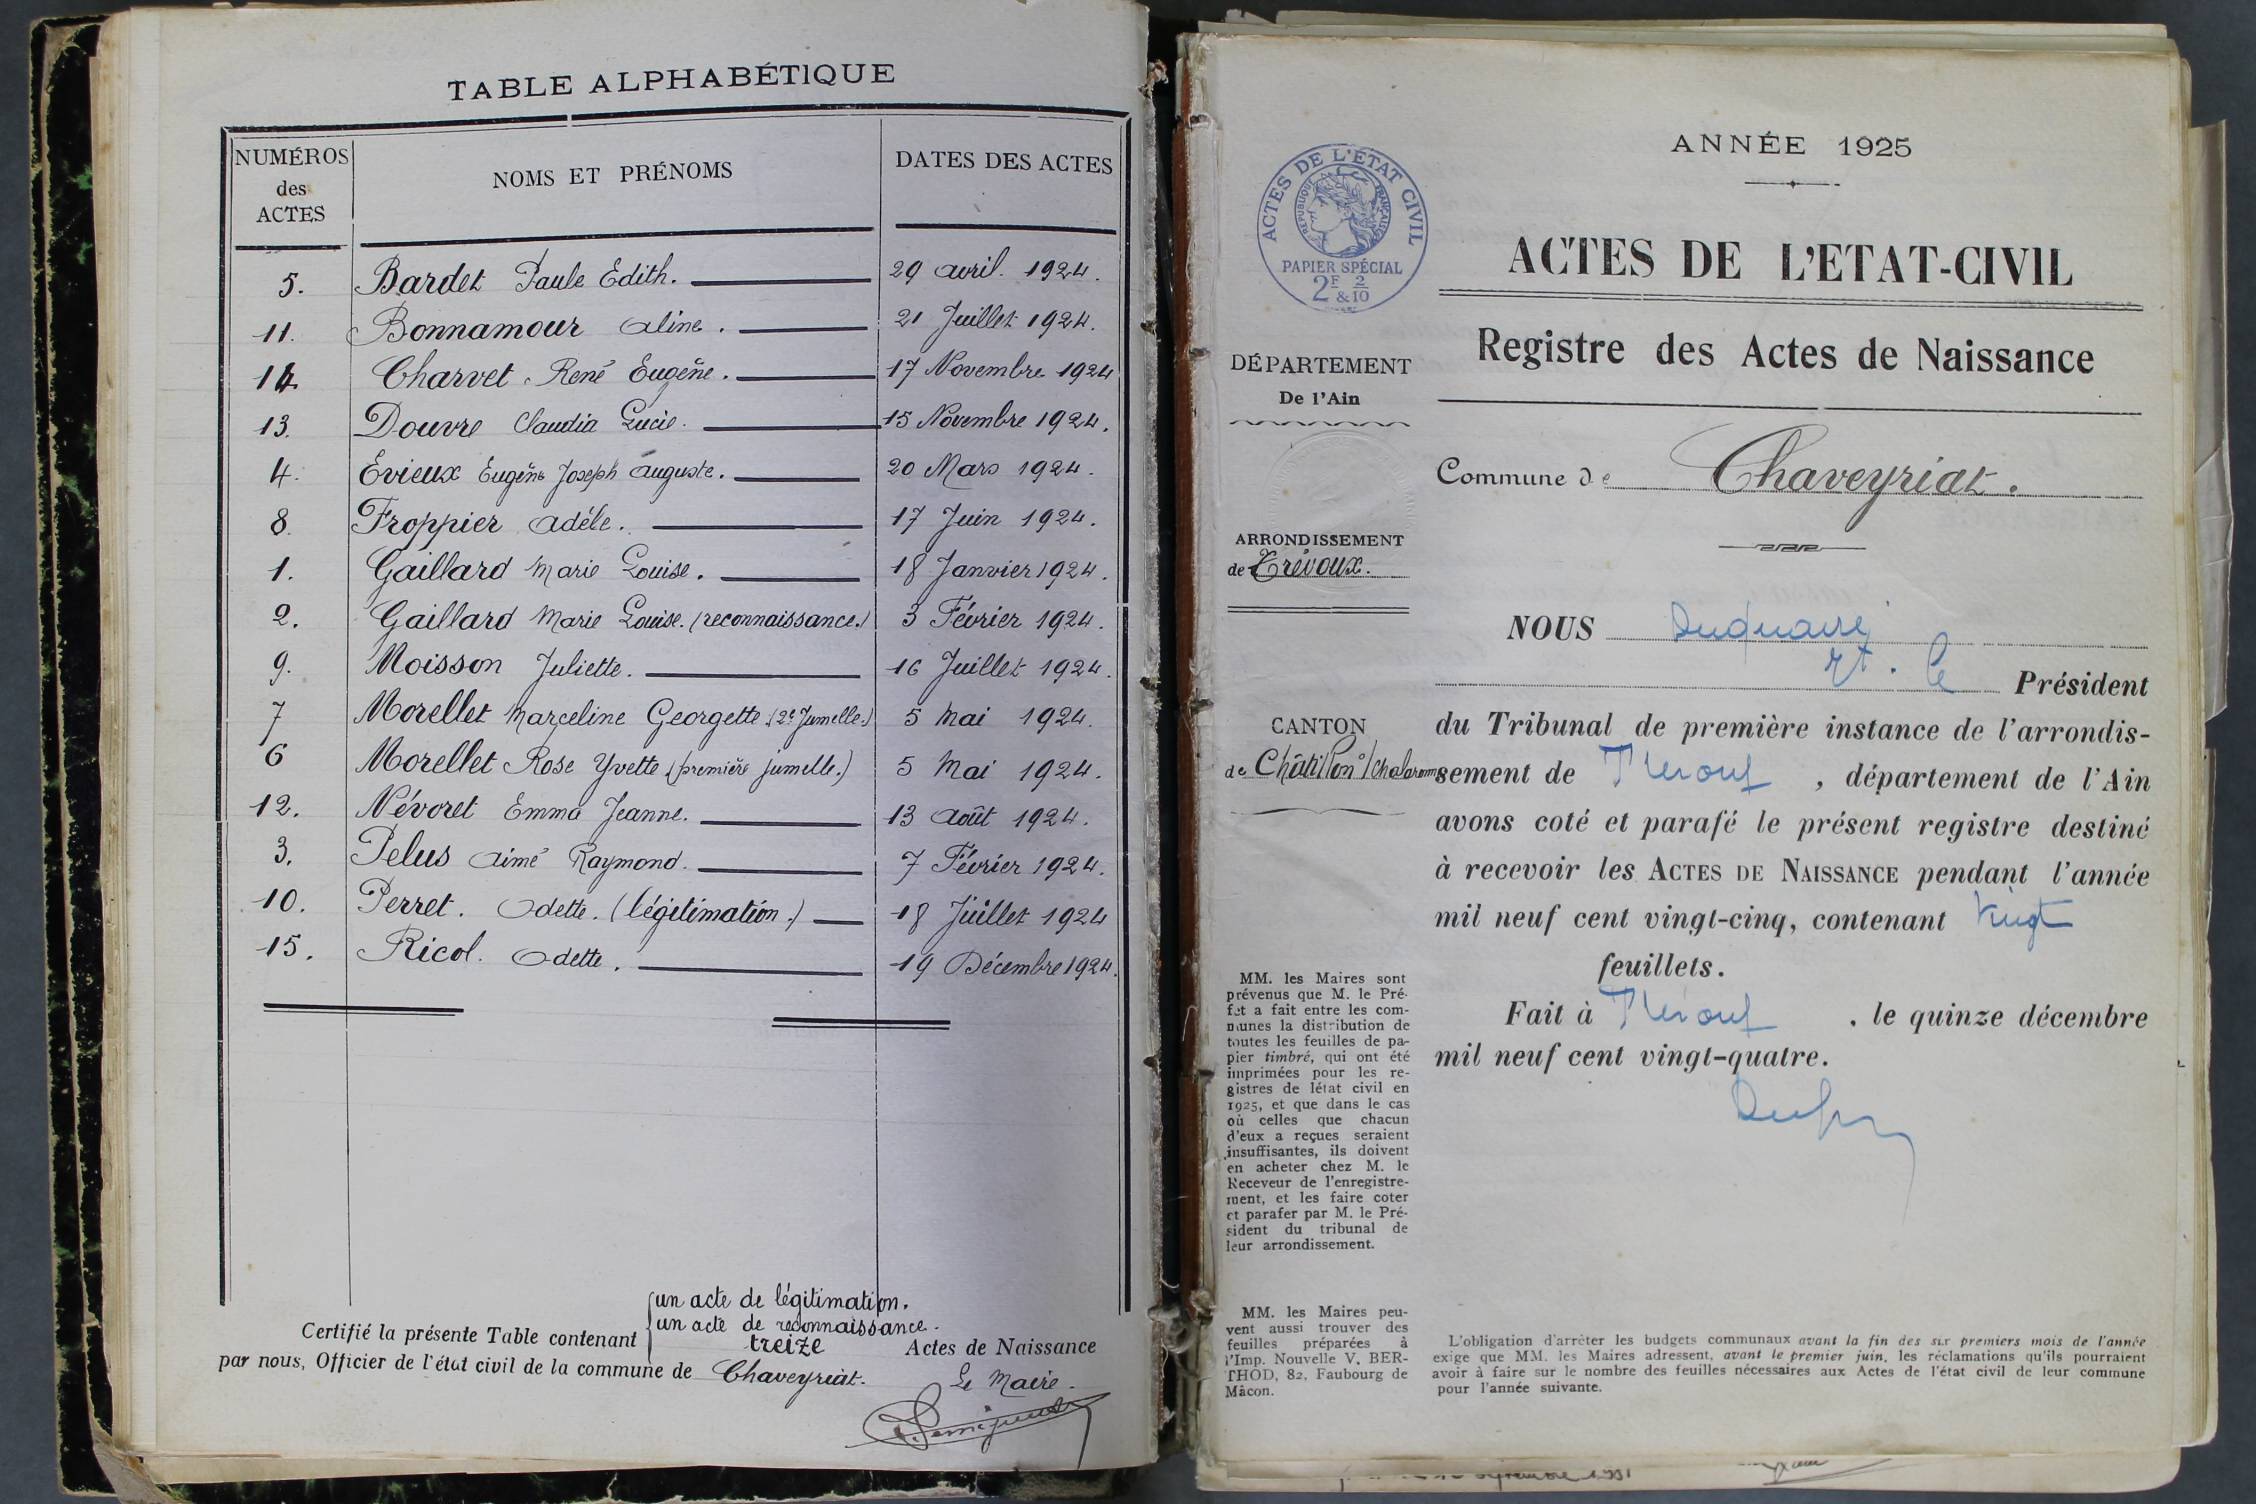 TABLE ALPHABÉTIQUE
NUMÉROS des ACTES NOMS ET PRÉNOMS DATES DES ACTES
5. Bardet Paule Edith. 29 avril. 1924.
11. Bonnamour Aline. 21 Juillet 1924.
14 Charvet. René Eugène. 17 Novembre 1924
13. Douvre Claudia Lucie. 15 Novembre 1924.
4. Evieux Eugène Joseph Auguste. 20 Mars 1924.
8. Froppier Adèle. 17 Juin 1924.
1. Gaillard Marie Louise. 18 Janvier 1924.
2. Gaillard Marie Louise. (reconnaissance.) 3 Février 1924.
9. Moisson Juliette. 16 Juillet 1924.
7 Morellet Marceline Georgette. (2e Jumelle.) 5 Mai 1924.
6 Morellet Rose Yvette (première jumelle.) 5 Mai 1924.
12. Névoret Emma Jeanne. 13 Août 1924.
3. Pelus Aimé Raymond. 7 Février 1924.
10. Perret. Odette. (légitimation.) 18 Juillet 1924
15. Ricol. Odette. 19 Décembre 1924.
un acte de légitimation.
un acte de reconnaissance.
Certifié la présente Table contenant treize Actes de Naissance
par nous, Officier de l'état civil de la commune de Chaveyriat.
Le Maire.
ANNÉE 1925
ACTES DE L'ÉTAT CIVIL
RÉPUBLIQUE FRANÇAISE
PAPIER SPÉCIAL
2F 2/10
&
ACTES DE L'ETAT-CIVIL
Registre des Actes de Naissance
DÉPARTEMENT
De l'Ain
Commune de Chaveyriat.
ARRONDISSEMENT
de Trévoux.
CANTON
de Châtillon s/ Chalaronne
NOUS Duquaire
Président
du Tribunal de première instance de l'arrondis-
sement de Trévoux, département de l'Ain
avons coté et parafé le présent registre destiné
à recevoir les ACTES DE NAISSANCE pendant l'année
mil neuf cent vingt-cinq, contenant vingt
feuillets.
Fait à Trévoux, le quinze décembre
mil neuf cent vingt-quatre.
MM. les Maires sont
prévenus que M. le Pré-
fet a fait entre les com-
munes la distribution de
toutes les feuilles de pa-
pier timbré, qui ont été
imprimées pour les re-
gistres de létat civil en
1925, et que dans le cas
où celles que chacun
d'eux a reçues seraient
insuffisantes, ils doivent
en acheter chez M. le
Receveur de l'enregistre-
ment, et les faire coter
et parafer par M. le Pré-
sident du tribunal de
leur arrondissement.
MM. les Maires peu-
vent aussi trouver des
feuilles préparées à
l'Imp. Nouvelle V. BER-
THOD, 82, Faubourg de
Mâcon.
L'obligation d'arrêter les budgets communaux avant la fin des six premiers mois de l'année
exige que MM. les Maires adressent, avant le premier juin, les réclamations qu'ils pourraient
avoir à faire sur le nombre des feuilles nécessaires aux Actes de l'état civil de leur commune
pour l'année suivante.